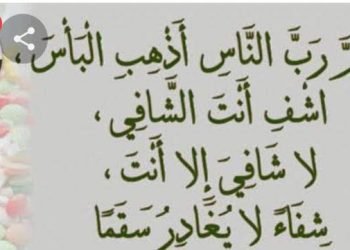 رَبَّ النَّاسِ أَذْهِبِ الْبَأْسَ،
اشْفِ أَنْتَ الشَّافِي،
لا شَافِيَ إِلا أَنْتَ،
شِفَاءً لا يُغَادِرُ سَقَمًا